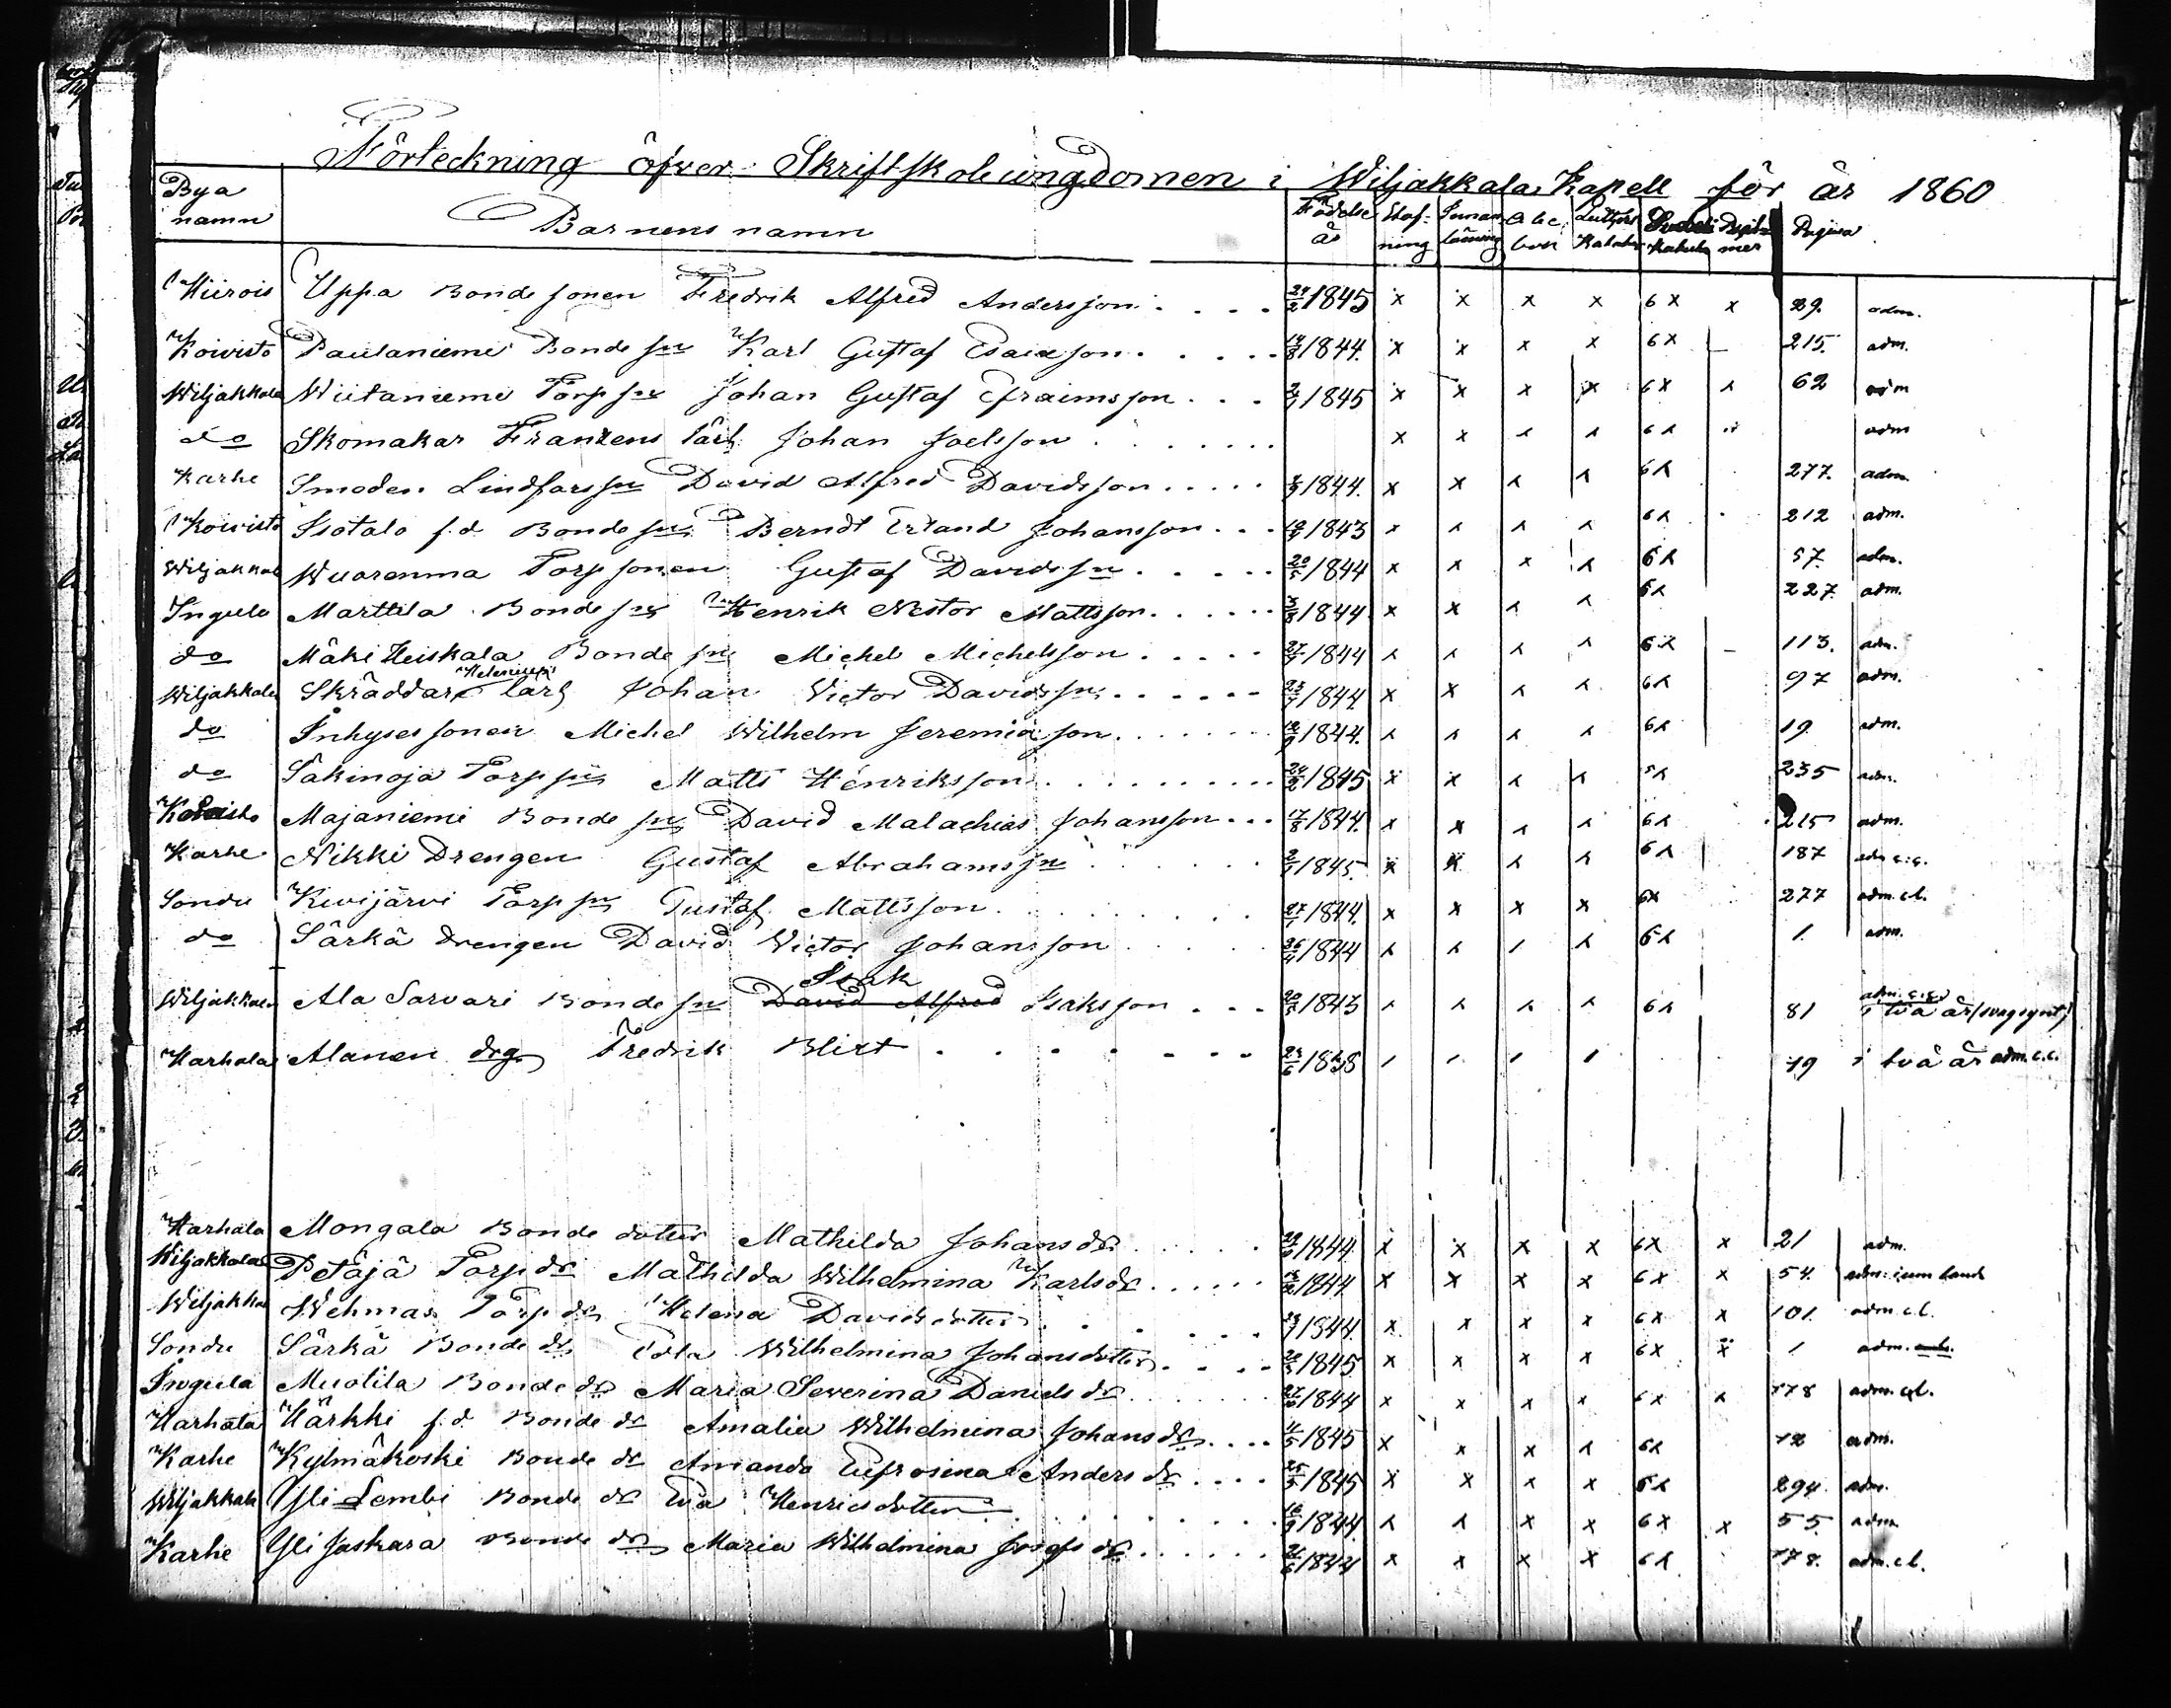 Förteckning öfver Skriftskoleungdomen i Wiljakkala Kapell för år 1860
Bya namn Barnens namn Födelse år Stafning Innanläsning Abc bok Luthers Katekes Svebeli Katekes Psalmer Pagina
Hiirois Uppa Bondesonen Fredrik Alfred Andersson 24/2 1845 x x x x 6 x x 29. adm.
Koivisto Paulaniemi Bonde sn Karl Gustaf Esaiasson 14/8 1844. x x x x 6 x – 215. adm.
Wiljakkala Wiitaniemi Torp sn Johan Gustaf Efraimsson 1845 x x x x 6 x x 62 adm
do Skomakar Franzens lärl Johan Joelsson x x x x 6 x adm
Karhe Smeden Lindfors sn David Alfred Davidsson 1844. x x x x 6 x 277. adm.
Koivisto Isotalo f.d. Bonde sn Berndt Erland Johansson 1843 x x x x 6 x 212 adm.
Wiljakkal Wuorenma Torpsonen Gustaf Davidssn 20/5 1844 x x x x 6 x 57. adm.
Ingula Marttila Bonde sn Henrik Nestor Mattsson 1844 x x x x 6 x 227. adm.
do Mäki Heiskala Bonde sn Michel Michelsson 1844 x x x x 6 x – 113. adm.
Wiljakkala Skräddar Helenii lärl Johan Victor Davidssn 1844 x x x x 6 x 97 adm.
do Inhysessonen Michel Wilhelm Jeremiason 1844. x x x x 6 x 19. adm.
do Säkinoja Torp sn Matts Henriksson 24/2 1845 x x x x 5 x 235 adm.
Koivisto Majaniemi Bonde sn David Malachias Johansson 17/8 1844. x x x x 6 x 215 adm.
Karhe Nikki Drengen Gustaf Abrahamssn 1845. x x x x 6 x 187 adm c.c.
Sondu Kivijärvi Torp sn Gustaf Mattsson 1844. x x x x 6x 277 adm. c.l.
do Särkä drengen David Victor Johansson 1844 x x x x 6 x 1. adm.
Wiljakkala Ala Sarvari Bonde sn David Alfred Isak Isaksson 1843 x x x x 6 x 81 adm. c.c. i två år (svagsynt)
Harhala Alanen drg Fredrik Blixt 1838 / / / / 79 i två år adm. c.c.
Harhala Mongala Bonde dotter Mathilda Johansdr 1844. x x x x 6x x 21 adm.
Wiljakkala Petäjä Torp dr Mathilda Wilhelmina Karlsdr 1844. x x x x 6 x x 54. adm: cum laude
Wiljakka Wehmas Torp dr Helena Davidsdotter 1844. x x x x 6 x x 101. adm. c.l.
Sondu Särkä Bonde dr Eva Wilhelmina Johansdotter 1845 x x x x 6 x x 1 adm.
Ingula Muotila Bonde dr Maria Severina Danielsdr 1844 x x x x 6 x x 178 adm. c.l.
Harhala Härkki f.d. Bonde dr Amalia Wilhelmina Johansdr 1845 x x x x 6 x 72 adm.
Karhe Kylmäkoski Bonde dr Amanda Eufrosina Andersdr 25/5 1845 x x x x 6 x 294. adm.
Wiljakkala Yli Lembi Bonde dr Eva Henricsdotter 16/9 1844 x x x x 6 x x 55. adm
Karhe Yli Jaskara Bonde dr Maria Wilhelmina Josefsdr 1844 x x x x 6 x 178. adm. c.l.